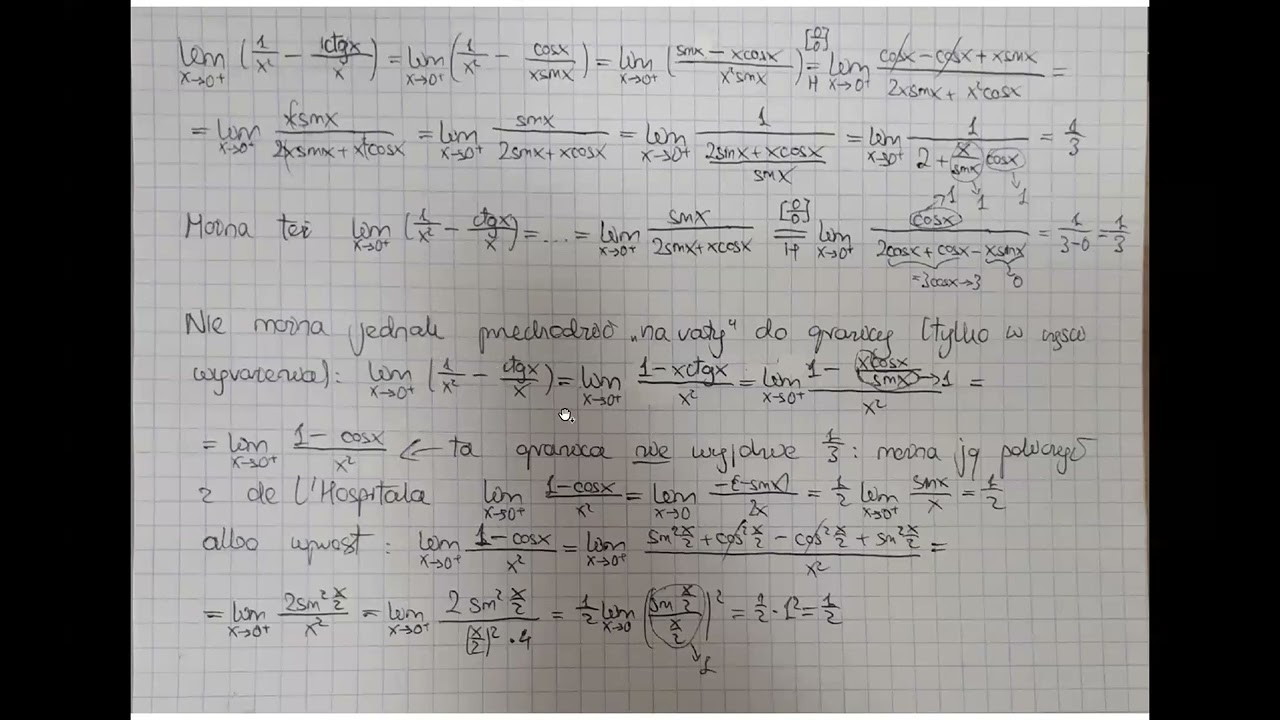 lim x→0⁺ (1/x² − ctgx/x) = lim x→0⁺ (1/x² − cosx/(xsinx)) = lim x→0⁺ ((sinx − xcosx)/(x²sinx)) =[0/0] H lim x→0⁺ (cosx − cosx + xsinx)/(2xsinx + x²cosx) =
= lim x→0⁺ xsinx/(2xsinx + x²cosx) = lim x→0⁺ sinx/(2sinx + xcosx) = lim x→0⁺ 1/((2sinx + xcosx)/sinx) = lim x→0⁺ 1/(2 + (x/sinx →1) (cosx →1)) = 1/3
Można też lim x→0⁺ (1/x² − ctgx/x) = ... = lim x→0⁺ sinx/(2sinx + xcosx) =[0/0] H lim x→0⁺ (cosx →1)/(2cosx + cosx − xsinx) = 1/(3−0) = 1/3
=3cosx→3 0
Nie można jednak przechodzić „na raty" do granicy (tylko w części
wyrażenia): lim x→0⁺ (1/x² − ctgx/x) = lim x→0⁺ (1 − xctgx)/x² = lim x→0⁺ (1 − xcosx/sinx →1)/x² =
= lim x→0⁺ (1 − cosx)/x² ← ta granica nie wyjdzie 1/3 : można ją policzyć
z de l'Hospitala lim x→0⁺ (1−cosx)/x² = lim x→0 −(−sinx)/2x = 1/2 lim x→0⁺ sinx/x = 1/2
albo wprost : lim x→0⁺ (1 − cosx)/x² = lim x→0⁺ (sin² x/2 + cos² x/2 − cos² x/2 + sin² x/2)/x² =
= lim x→0⁺ 2sin² x/2 / x² = lim x→0⁺ 2 sin² x/2 / ((x/2)² · 4) = 1/2 lim x→0 (sin x/2 / x/2)² = 1/2 · 1² = 1/2
→ 1